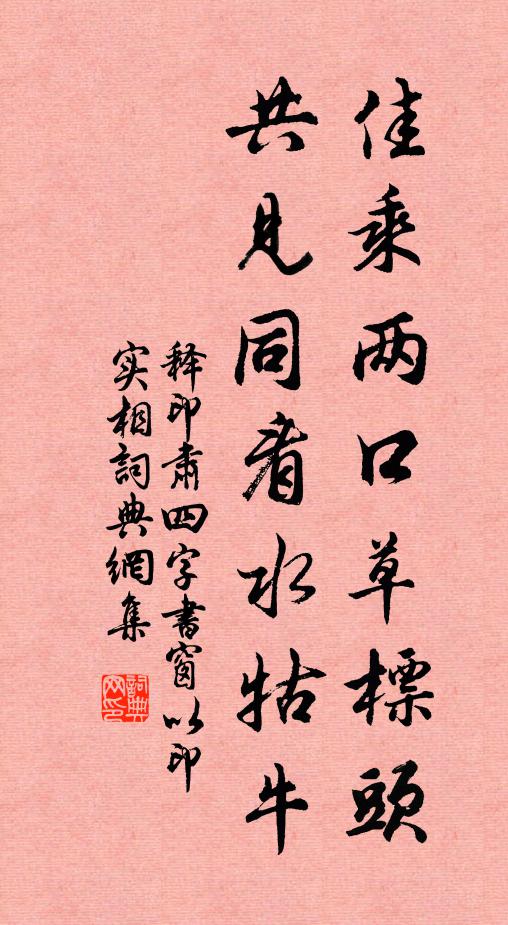 佳乘两口草標頭
共見同看水牯牛
释印肅四字書窗以印
实相詞典網集
詞典网印